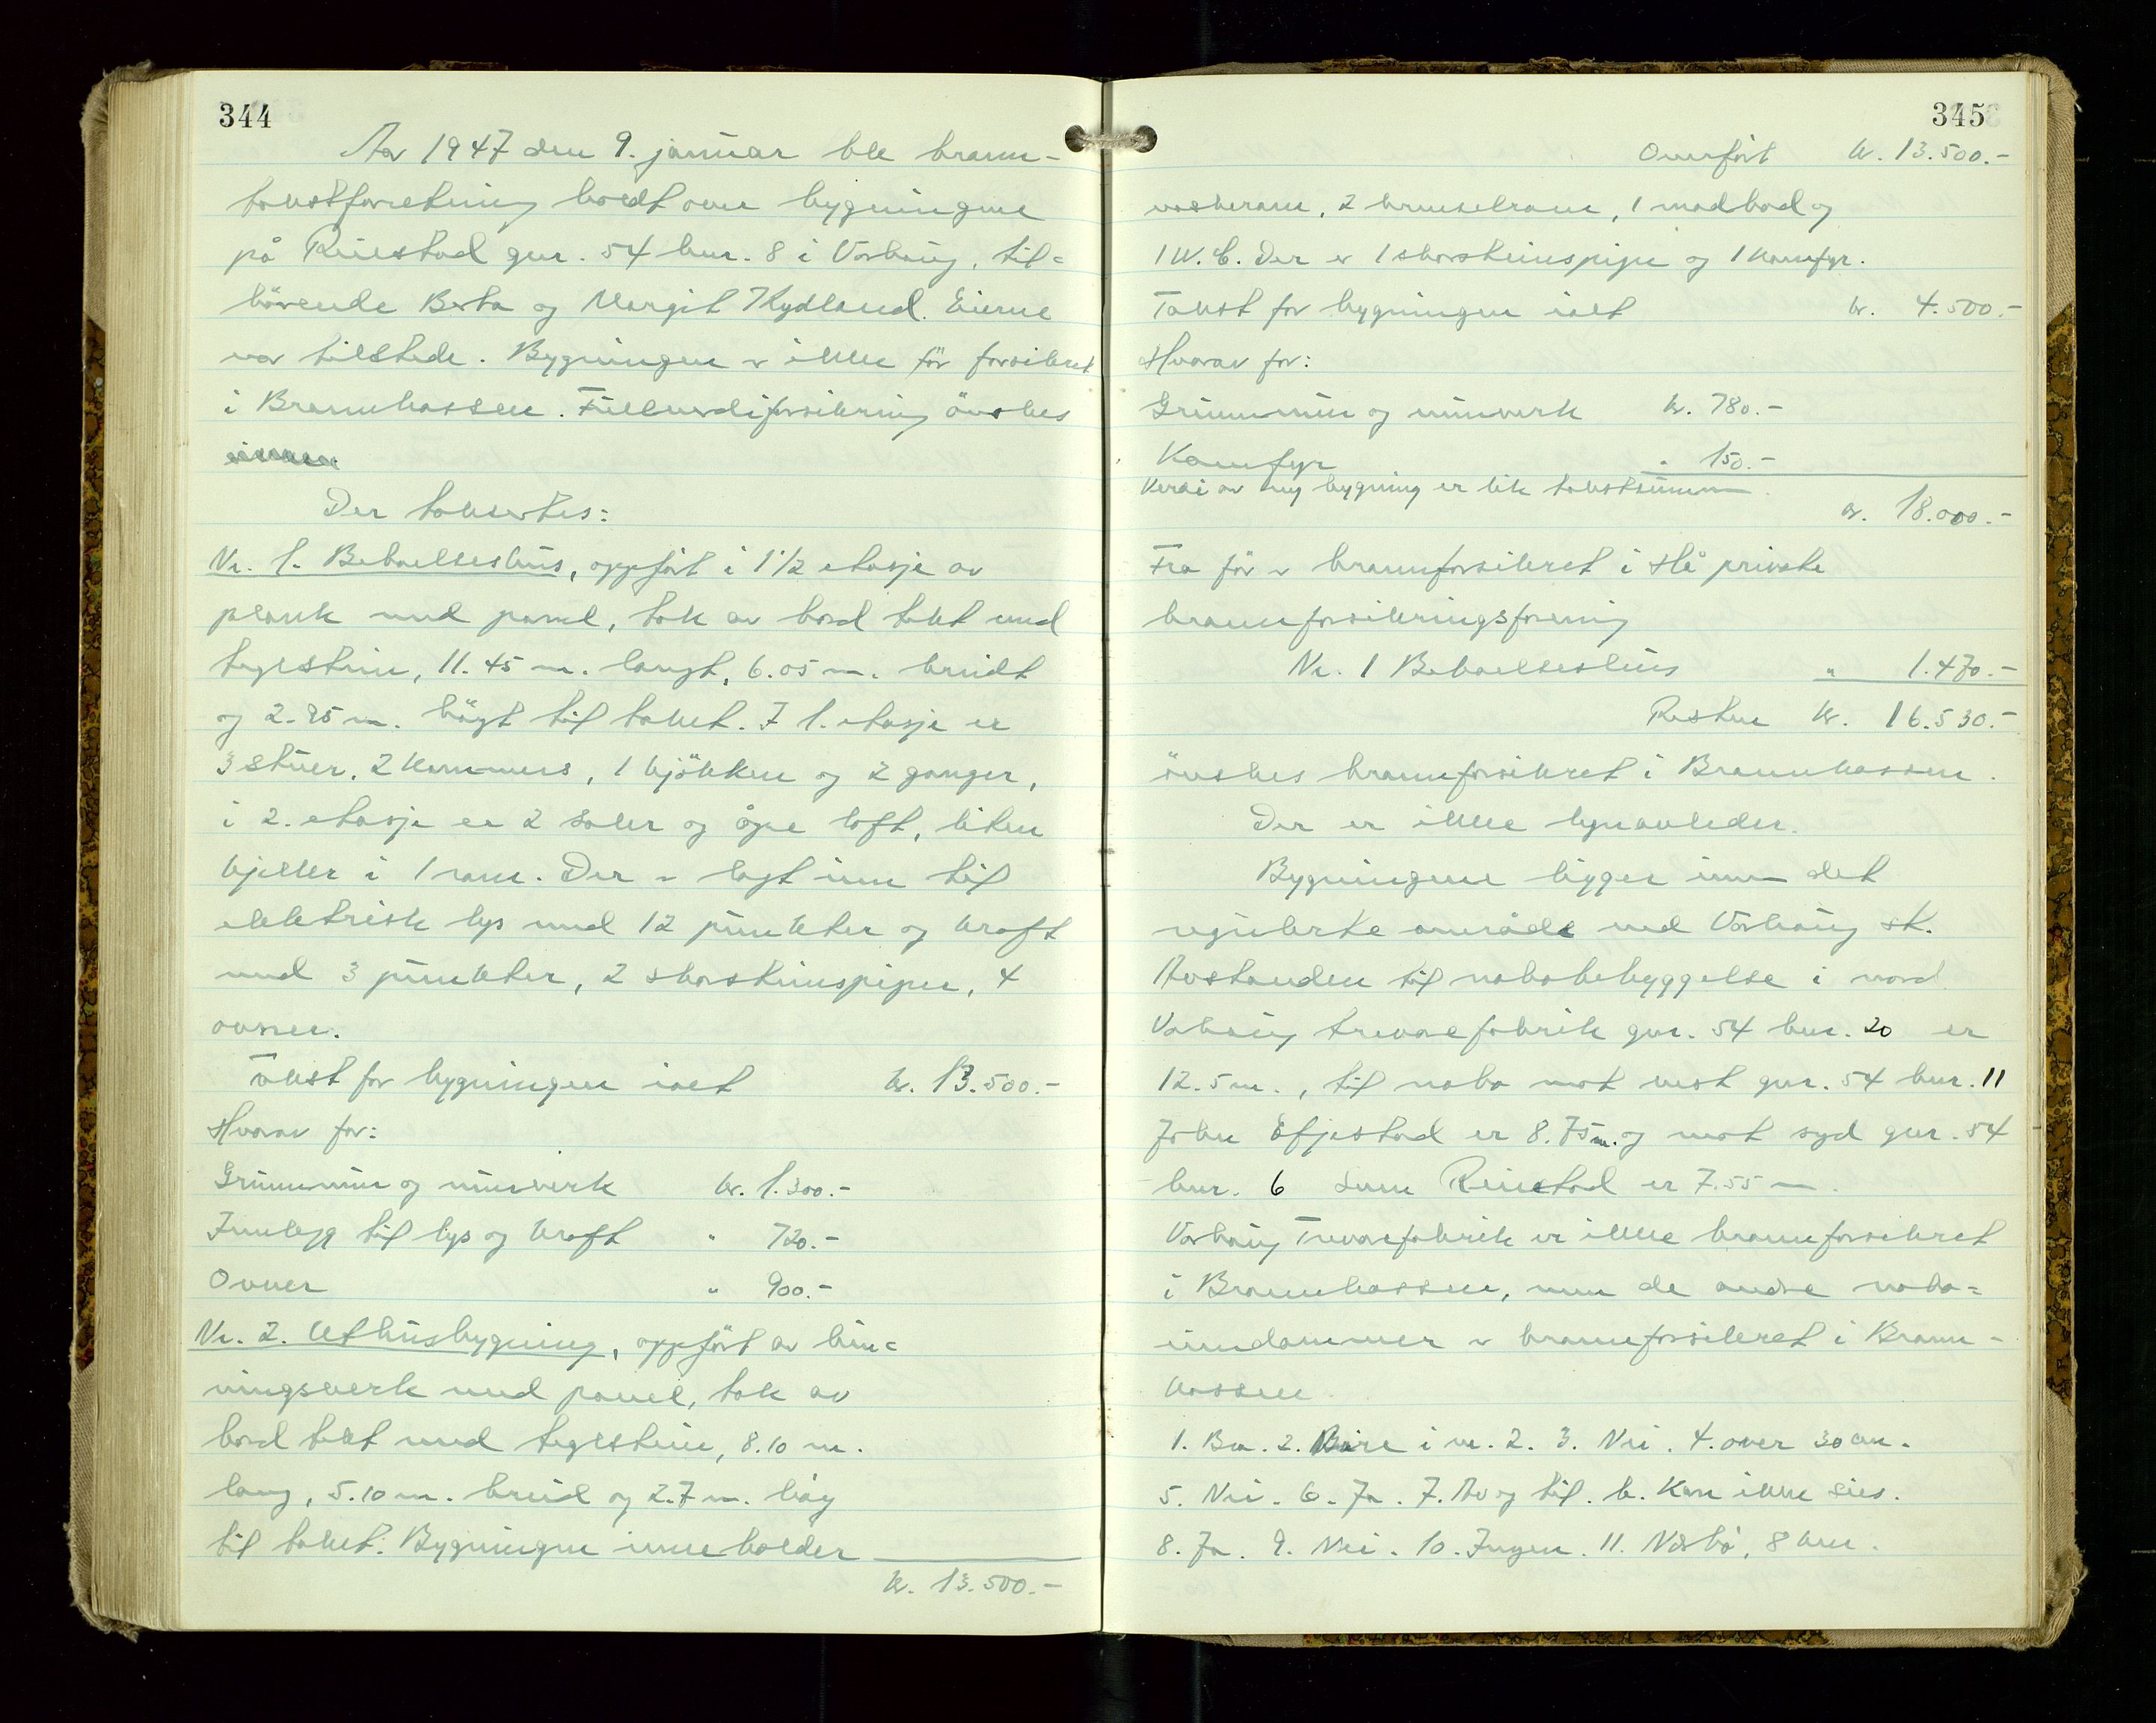 344
Aar 1947 den 9. januar ble brann-
takstforretning holdt over bygningene
på Reiestad gnr. 54 bnr. 8 i Varhaug, til=
hörende Berta og Margit Kydland. Eierne
var tilstede. Bygningen er ikke för forsikret
i Brannkassen. Fullverdiforsikring önskes
Der takseres:
Nr. 1. Beboelseshus, oppfört i 1 1/2 etasje av
plank med panel, tak av bord tekt med
teglstein, 11.45 m. langt, 6.05 m. breidt
og 2.95 m. högt til taket. I 1. etasje er
3 stuer, 2 kammers, 1 kjökken og 2 ganger,
i 2. etasje er 2 saler og åpe loft, liten
kjeller i 1 rom. Der er lagt inn til
elektrisk lys med 12 punkter og kraft
med 3 punkter, 2 skorsteinspiper, 4
ovner.
Takst for bygningen ialt kr. 13.500.-
Hvorav for:
Grunnmur og murverk kr. 1.300.-
Innlegg til lys og kraft " 720.-
Ovner " 900.-
Nr. 2. Uthusbygning, oppfört av bin=
ningsverk med panel, tak av
bord tekt med teglstein, 8.10 m.
lang, 5.10 m. breid og 2.7 m. höy
til taket. Bygningen inneholder
kr. 13.500.-
345
Overfört kr. 13.500.-
vaskerom, 2 brenselrom, 1 matbod og
1 W.C. Der er 1 skorsteinspipe og 1 komfyr.
Takst for bygningen ialt kr. 4.500.-
Hvorav for:
Grunnmur og murverk kr. 780.-
Komfyr " 150.-
Verdi av ny bygning er lik takstsummen.
kr. 18.000.-
Fra för er brannforsikret i Hå private
brannforsikringsforening
Nr. 1 Beboelseshus " 1.470.-
Resten kr. 16.530.-
önskes brannforsikret i Brannkassen.
Der er ikke lynavleder.
Bygningene ligger inn det
regulerte område ved Varhaug st.
Avstanden til nabobebyggelse i nord
Varhaug trevarefabrik gnr. 54 bnr. 20 er
12.5 m., til nabo mot vest gnr. 54 bnr. 11
John Efjestad er 8.75 m. og mot syd gnr. 54
bnr. 6 Reiestad er 7.55 m.
Varhaug Trevarefabrik er ikke brannforsikret
i Brannkassen, men de andre nabo=
eiendommer er brannforsikret i Brann-
kassen.
1. Bra. 2. Bare i nr. 2. 3. Nei. 4. over 30 cm.
5. Nei. 6. Ja. 7. Av og til. b. Kan ikke sies.
8. Ja. 9. Nei. 10. Ingen. 11. Nærbö, 8 km.